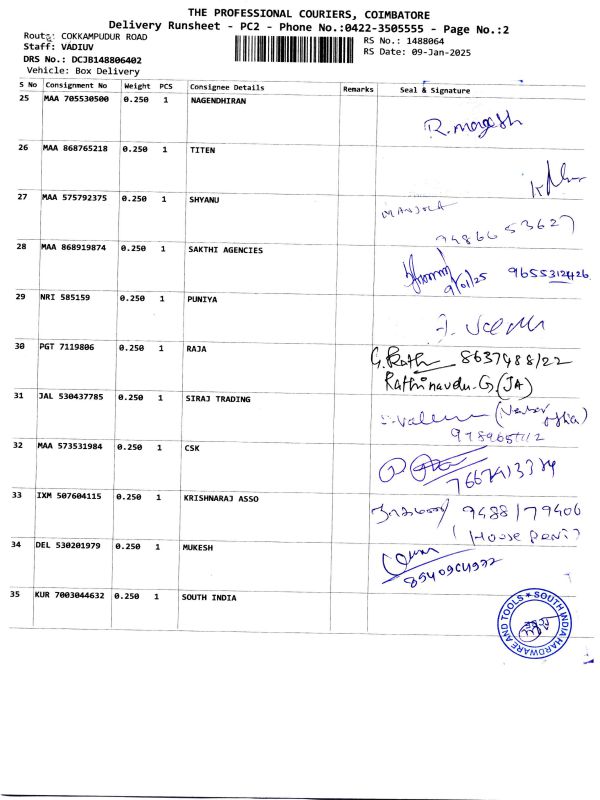 THE PROFESSIONAL COURIERS, COIMBATORE
Delivery Runsheet - PC2 - Phone No.:0422-3505555 - Page No.:2
Route: COKKAMPUDUR ROAD
RS No.: 1488064
Staff: VADIUV
RS Date: 09-Jan-2025
DRS No.: DCJB148806402
Vehicle: Box Delivery
S No Consignment No Weight PCS Consignee Details Remarks Seal & Signature
25 MAA 705530500 0.250 1 NAGENDHIRAN
R. magesh
26 MAA 868765218 0.250 1 TITEN
27 MAA 575792375 0.250 1 SHYANU
MANJULA
9486653627
28 MAA 868919874 0.250 1 SAKTHI AGENCIES
9/01/25 9655312426
29 NRI 585159 0.250 1 PUNIYA
30 PGT 7119806 0.250 1 RAJA
G. Rath 8637488122
Rathinavdu.G (JA)
31 JAL 530437785 0.250 1 SIRAJ TRADING
32 MAA 573531984 0.250 1 CSK
33 IXM 507604115 0.250 1 KRISHNARAJ ASSO
9488179406
(House
34 DEL 530201979 0.250 1 MUKESH
35 KUR 7003044632 0.250 1 SOUTH INDIA
SOUTH INDIA HARDWARE AND TOOLS